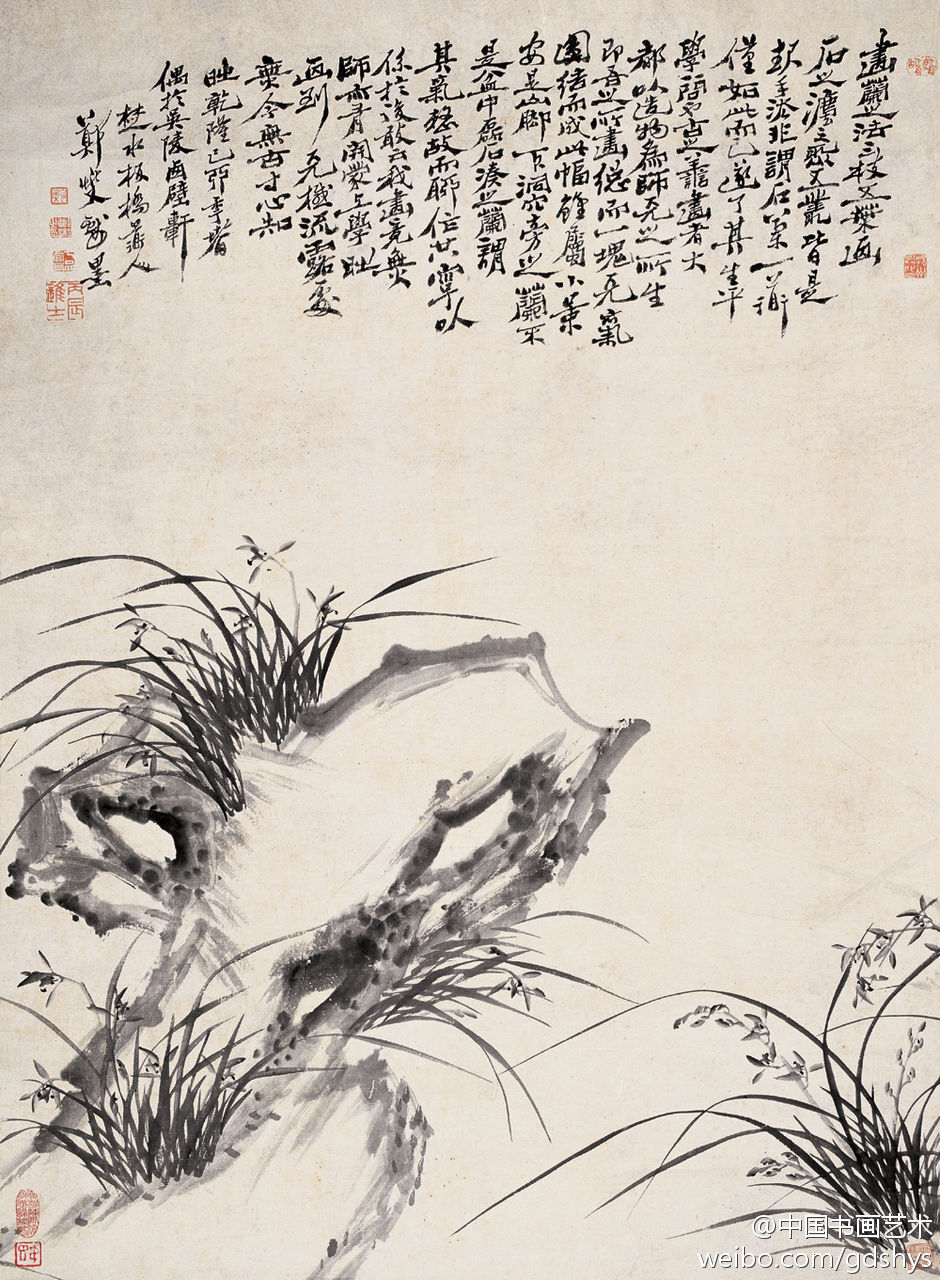 畫蘭之法三枝五葉画
石之灋三聚五叢皆是
起手法非謂石一術
僅如此而已遂了其生平
學問也古之善畫者大
都以造物為師天之所生
即吾之所畫總而一塊元氣
團結而成此幅雖屬小景
要是山脚下洞穴旁之蘭不
是盆中磊石湊之蘭謂
其氣整故而聊作廿八字以
係於後敢云我畫竟無
師亦有開蒙上學時
画到天機流露處
無今無古寸心知
時乾隆己卯年
偶於陵画壁軒
楚水板橋道人
鄭燮戲墨
丙辰進士
@中国书画艺术
weibo.com/gdshys